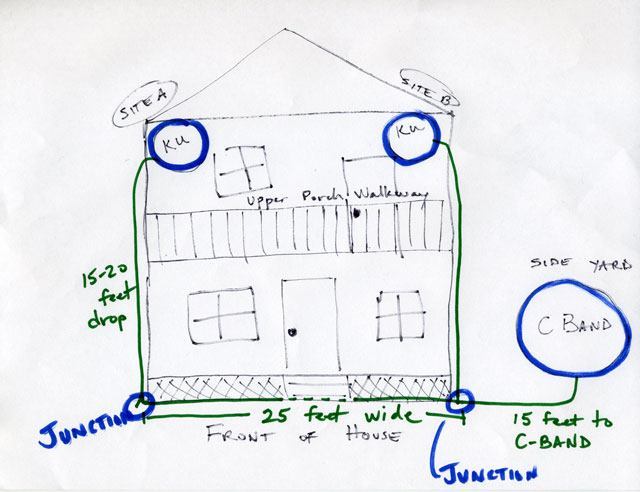 SITE A
SITE B
KU
KU
Upper Porch Walkway
15-20
feet
drop
SIDE YARD
C BAND
JUNCTION
25 feet wide
FRONT OF HOUSE
15 feet to
C-BAND
JUNCTION